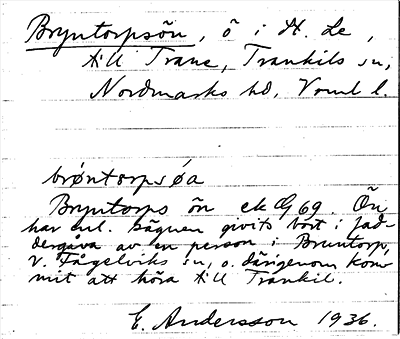 Bryntorpsön, ö i St. Le,
till Trane, Trankils sn,
Nordmarks hd, Vrml l.
brøntorpsøa
Bryntorps ön ek G 69. Ön
har enl. sägnen givits bort i fad-
dergåva av en person i Bruntorp,
V. Fågelviks sn, o. därigenom kom-
mit att höra till Trankil.
E. Andersson 1936.